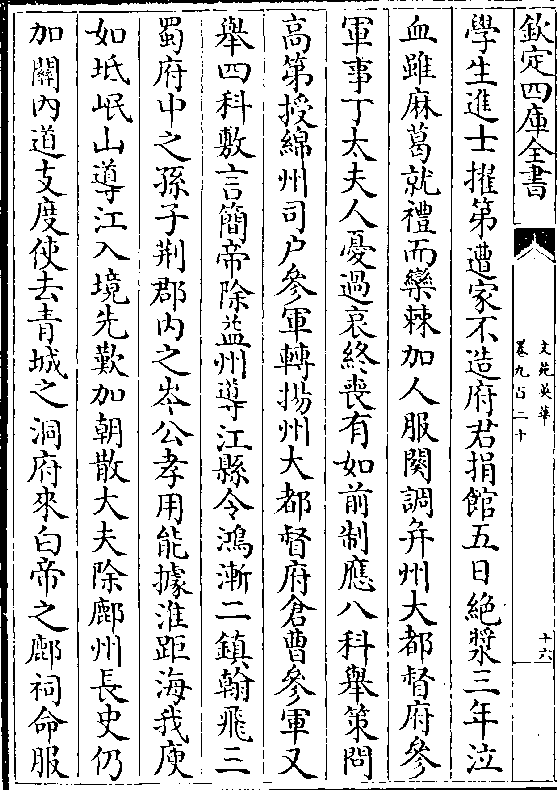 欽定四庫全書
文苑英華
卷九百二十
十六
學生進士擢第遭家不造府君捐館五日絶漿三年泣
血雖麻葛就禮而欒棘加人服闋調并州大都督府參
軍事丁太夫人憂過哀終喪有如前制應八科舉策問
高第授綿州司户參軍轉揚州大都督府倉曹參軍又
舉四科敷言簡帝除益州導江縣令鴻漸二鎮翰飛三
蜀府中之孫子荆郡内之岑公孝用能據淮距海我庾
如坻岷山導江入境先歎加朝散大夫除鄜州長史仍
加關内道支度使去青城之洞府來白帝之鄜祠命服